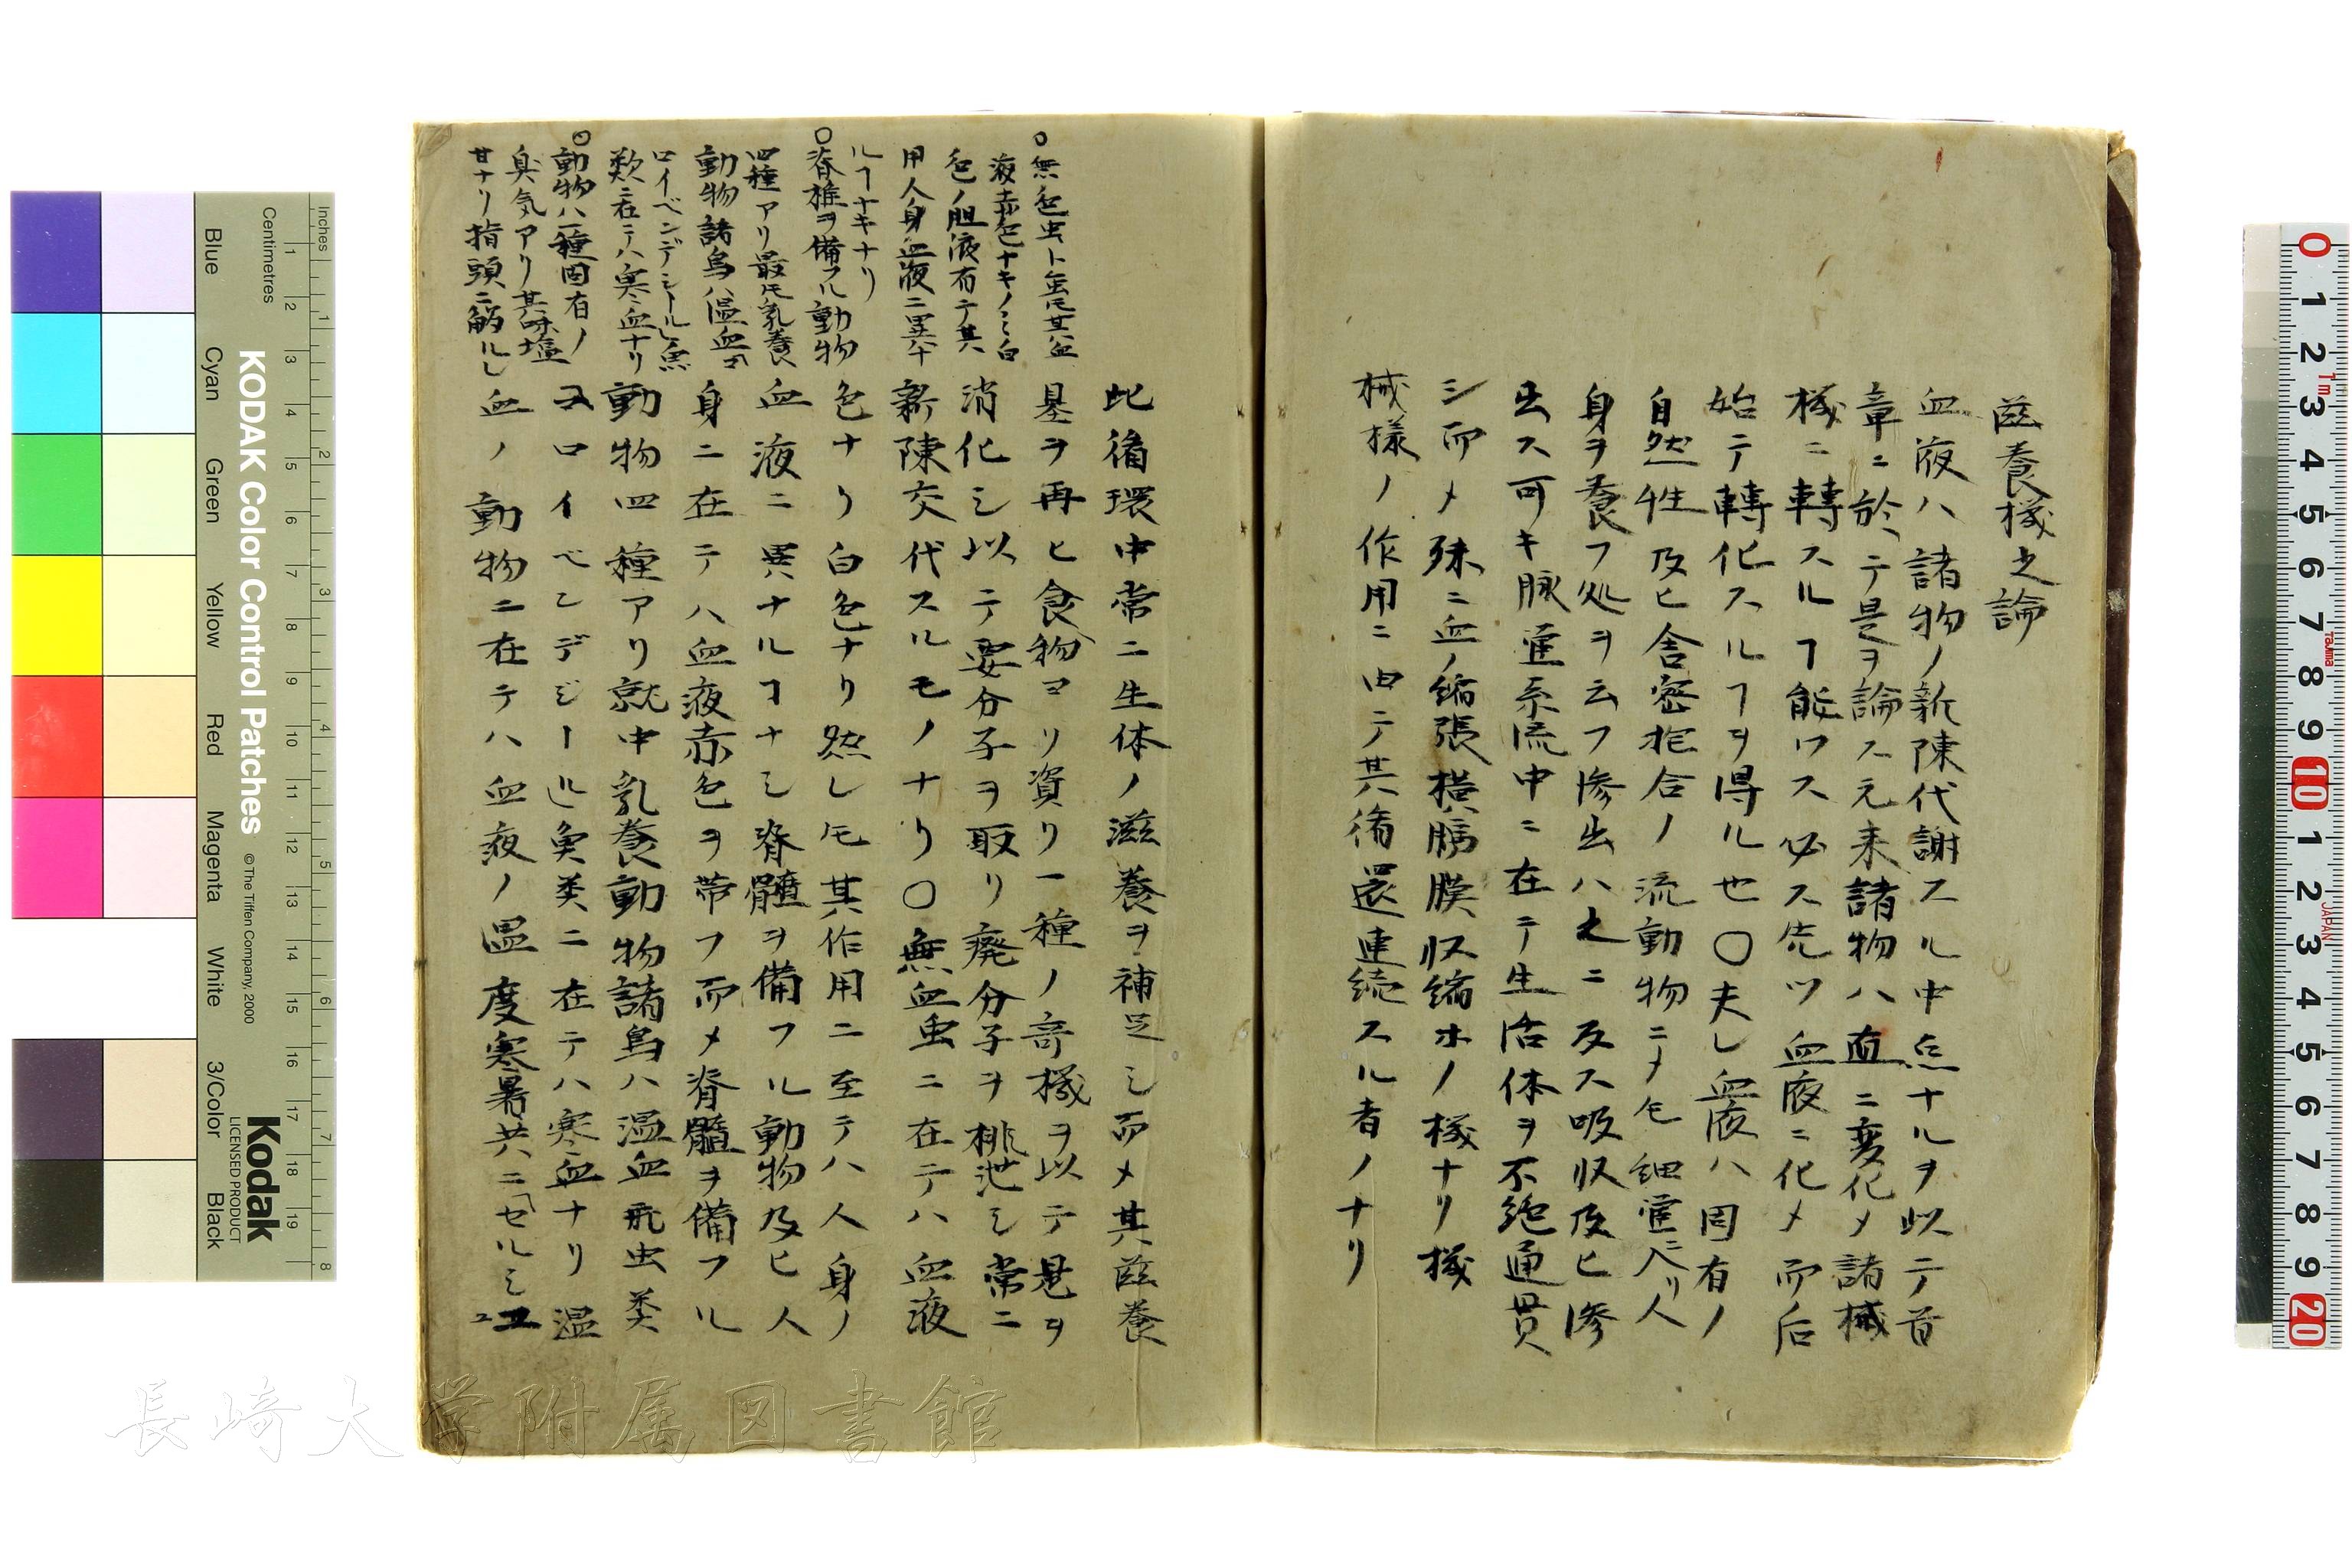 滋養機之論
血液ハ諸物ノ新陳代謝スル中点ナルヲ以テ首
章ニ於テ是ヲ論ス元来諸物ハ直ニ変化〆諸械
機ニ轉スルヿ能ワス必ス先ツ血液ニ化〆而后
始テ轉化スルヿヲ得ル也〇夫レ血液ハ固有ノ
自然性及ヒ舎密抱合ノ流動物ニ〆モ細管ニ入リ人
身ヲ養フ処ヲ云フ滲出ハ之ニ反ス吸収及ヒ滲
出ス可キ脉管系流中ニ在テ生活体ヲ不絶通貫
シ而〆殊ニ血ノ縮張横膈膜収縮ホノ機ナリ機
械様ノ作用ニ由テ其循還連続スル者ノナリ
此循環中常ニ生体ノ滋養ヲ補足シ而〆其滋養
基ヲ再ヒ食物ヨリ資リ一種ノ奇機ヲ以テ是ヲ
消化シ以テ要分子ヲ取リ廃分子ヲ排泄シ常ニ
新陳交代スルモノナリ〇無血虫ニ在テハ血液
色ナリ白色ナリ然レ𪜈其作用ニ至テハ人身ノ
血液ニ異ナルコナシ脊髄ヲ備フル動物及ヒ人
身ニ在テハ血液赤色ヲ帶フ而〆脊髓ヲ備フル
動物四種アリ就中乳養動物諸鳥ハ温血飛虫类
ヱロイベンデジール辶魚类ニ在テハ寒血ナリ温
血ノ動物ニ在テハ血液ノ温度寒暑共ニセルミユ
〇無色虫ト雖𪜈其血
液赤色ナキノミ白
色ノ胆液有テ其
用人身血液ニ異
ルヿナキナリ
〇脊椎ヲ備フル動物
四種アリ最𪜈乳養
動物諸鳥ハ温血
ロイベンデジール魚
類ニ在テハ寒血ナリ
〇動物ハ一種固有ノ
臭気アリ其味塩
甘ナリ指頭ニ觸ルレ
Inches
Centimetres
KODAK Color Control Patches
© The Tiffen Company, 2000
Kodak
LICENSED PRODUCT
Blue
Cyan
Green
Yellow
Red
Magenta
White
3/Color
Black
1 2 3 4 5 6 7 8
1 2 3 4 5 6 7 8 9 10 11 12 13 14 15 16 17 18 19
0 1 2 3 4 5 6 7 8 9 10 1 2 3 4 5 6 7 8 9 20
1m
Tajima
JAPAN
長崎大学附属図書館